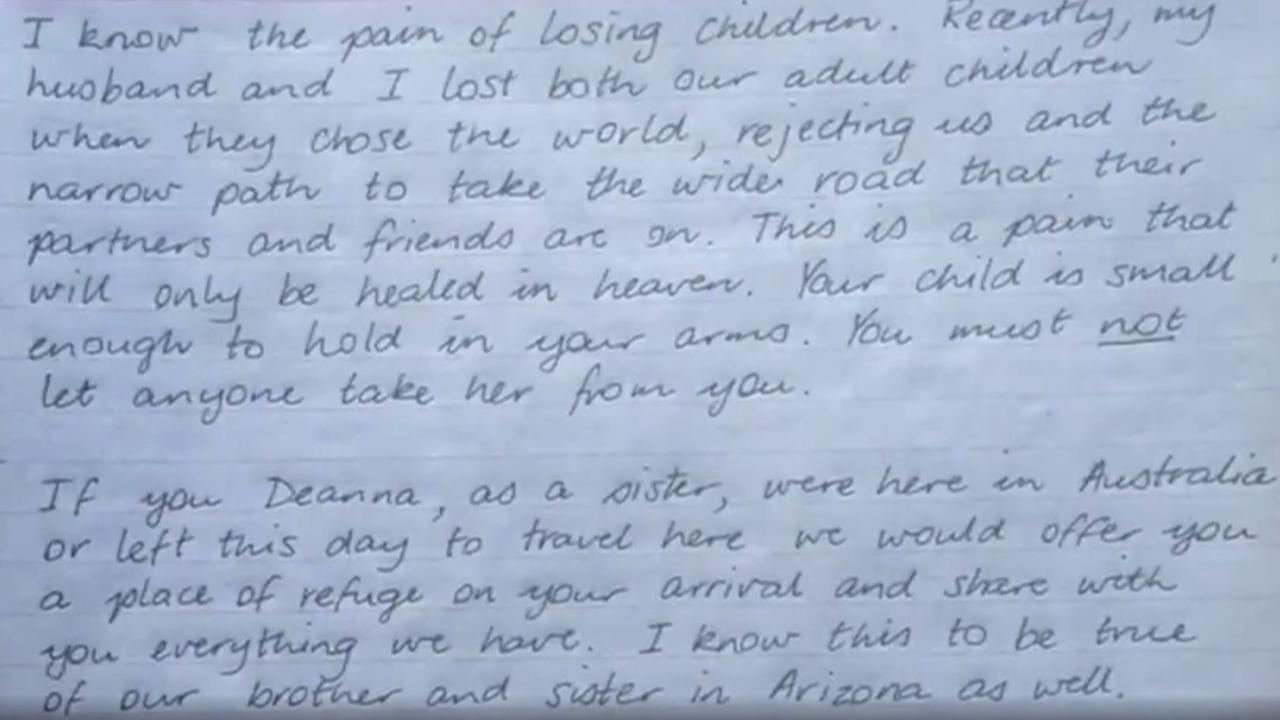 I know the pain of losing children. Recently, my
husband and I lost both our adult children
when they chose the world, rejecting us and the
narrow path to take the wider road that their
partners and friends are on. This is a pain that
will only be healed in heaven. Your child is small
enough to hold in your arms. You must not
let anyone take her from you.
If you Deanna, as a sister, were here in Australia
or left this day to travel here we would offer you
a place of refuge on your arrival and share with
you everything we have. I know this to be true
of our brother and sister in Arizona as well.